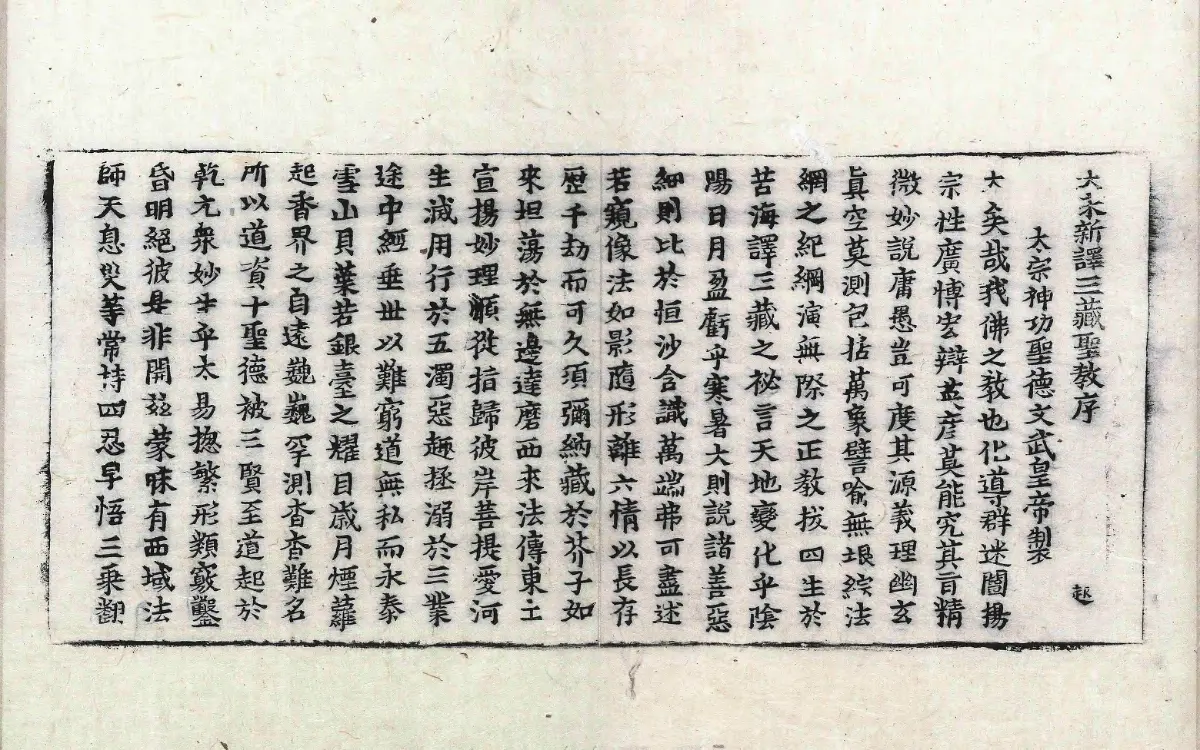 大宋新譯三藏聖教序
太宗神功聖德文武皇帝製 起
大矣哉我佛之教也化導群迷闡揚
宗性廣博宏辯英彥莫能究其旨精
微妙說庸愚豈可度其源義理幽玄
真空莫測包括萬象譬喻無垠綜法
網之紀綱演無際之正教拔四生於
苦海譯三藏之祕言天地變化乎陰
陽日月盈虧乎寒暑大則說諸善惡
細則比於恒沙含識萬端弗可盡述
若窺像法如影隨形離六情以長存
歷千劫而可久須彌納藏於芥子如
來坦蕩於無邊達磨西來法傳東土
宣揚妙理順從指歸彼岸菩提愛河
生滅用行於五濁惡趣拯溺於三業
途中經垂世以難窮道無私而永泰
雪山貝葉若銀臺之耀目歲月煙蘿
起香界之自遠巍巍罕測杳杳難名
所以道資十聖德被三賢至道起於
乾元眾妙生乎太易揔繁形類竅鑿
昏明絕彼是非開茲蒙昧有西域法
師天息災等常持四忍早悟三乘翻